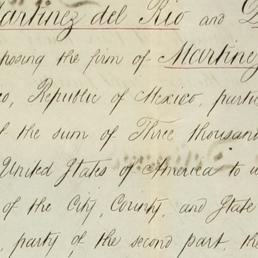 Martinez del Rio and D
posing the firm of Martinez
co, Republic of Mexico, partie
f the sum of Three thousand
United States of America to u
of the City, County, and State
, party of the second part, the